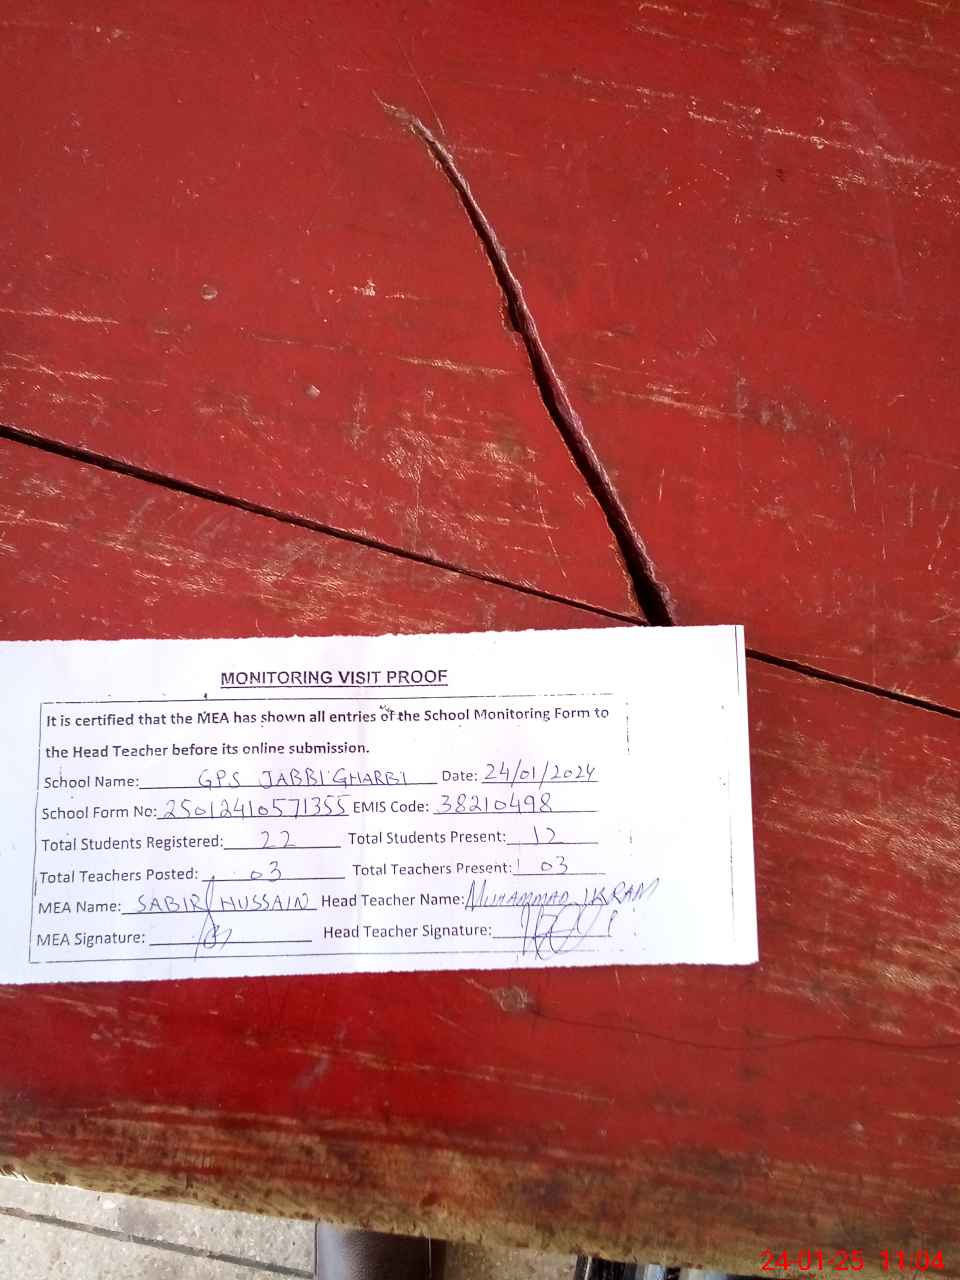 MONITORING VISIT PROOF
It is certified that the MEA has shown all entries of the School Monitoring Form to
the Head Teacher before its online submission.
School Name: GPS JABBI GHARBI Date: 24/01/2024
School Form No: 25012410571355 EMIS Code: 38210498
Total Students Registered: 22 Total Students Present: 12
Total Teachers Posted: 03 Total Teachers Present: 03
MEA Name: SABIR HUSSAIN Head Teacher Name: MUHAMMAD IKRAM
MEA Signature: Head Teacher Signature:
24-01-25 11:04